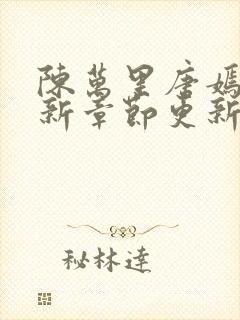 陳萬里唐嫣
新章節更新
秘林達